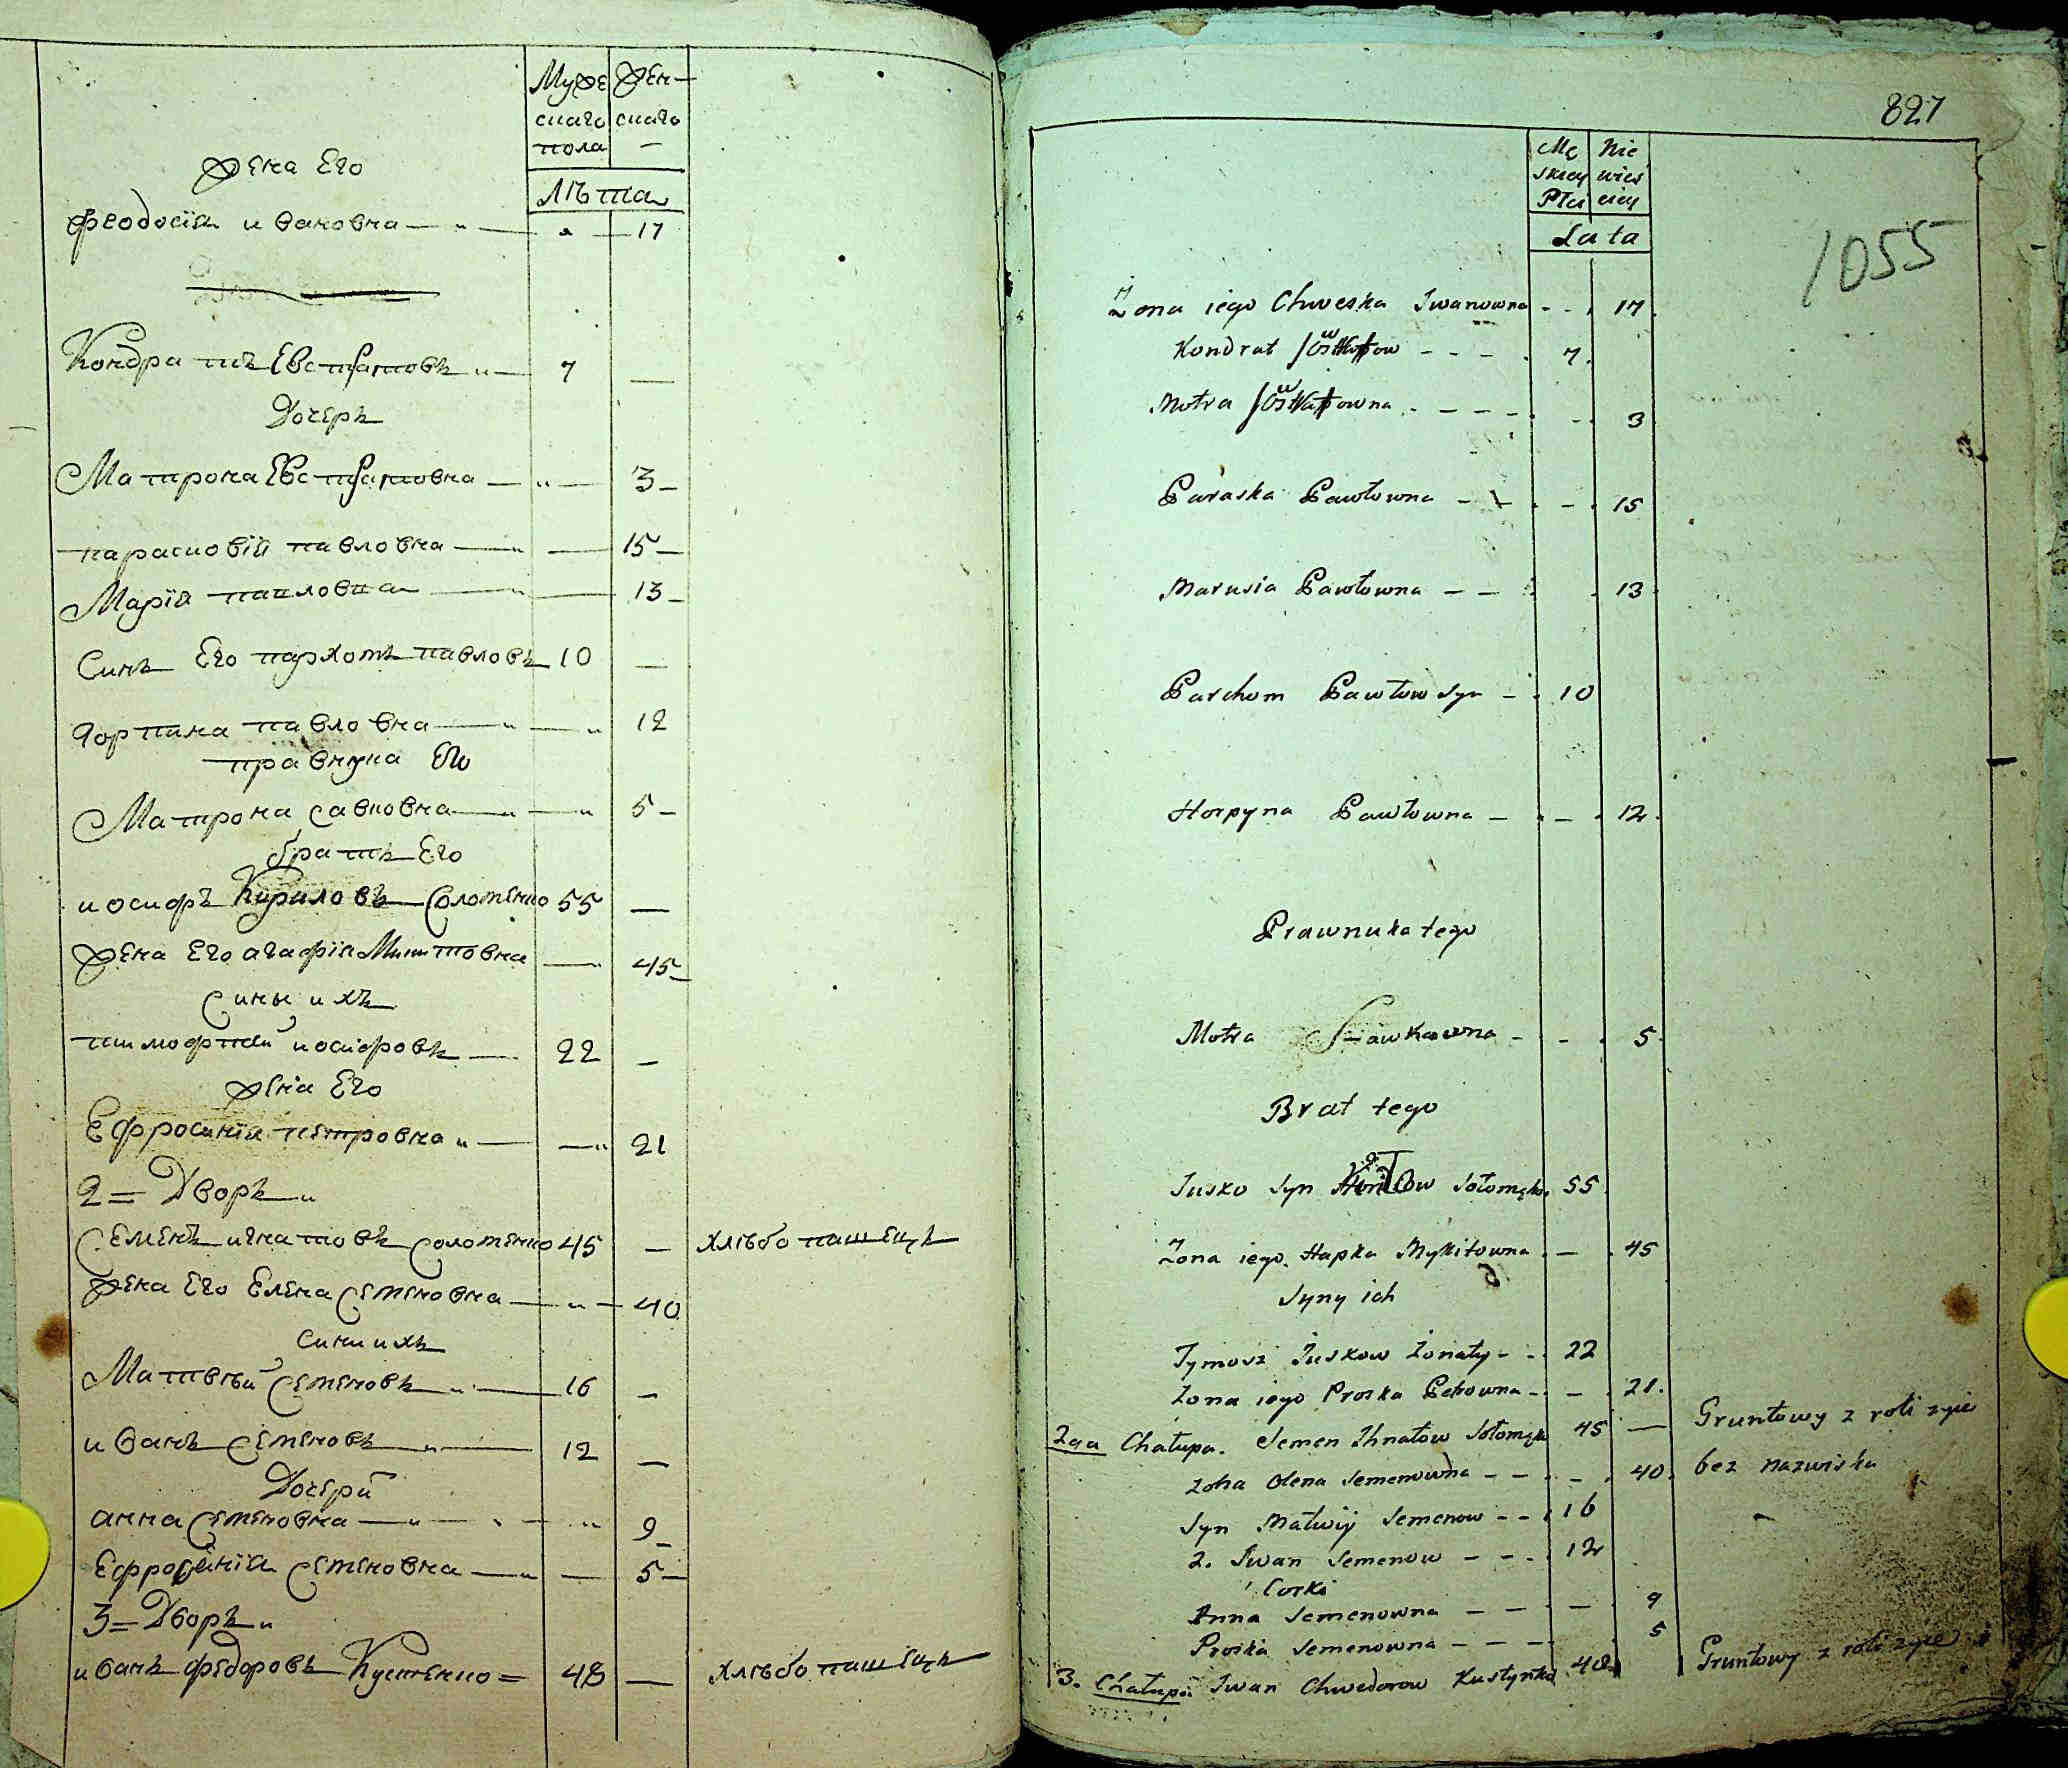 Муже Жен-
скаго скаго
пола —
Лѣта
жена Его
феодосіа ивановна — " — 17
Кондратъ Евстратовъ " — 7 —
Дочеръ
Матрона Евстратовна — " — 3 —
парасковіа павловна — " — 15 —
Маріа павловна — " — 13 —
Синъ Его пархомъ павловъ 10 —
горпина павловна — " — " 12
правнука Его
Матрона савковна — " — " 5 —
братъ Его
иосифъ Кириловъ Соломенко 55 —
жена Его агафіа Микитовна — 45 —
Сины ихъ
тимофтей иосифовъ — 22 —
жена Его
Ефросиніа петровна " — — " 21
2 = Дворъ "
Семенъ игнатовъ Соломенко 45 — хлѣбопашецъ
жена Его Елена Семеновна — " — 40
сини ихъ
Матвѣй Семеновъ " — 16 —
иванъ Семеновъ " — 12 —
Дочери
анна Семеновна — " — " 9 —
Ефросиніа Семеновна — " — 5 —
3 = Дворъ "
иванъ федоровъ Кустенко = 48 — хлѣбопашецъ
827
1055
Mę Nie
skiey wies
Płci ciey
Lata
Żona iego Chweska Iwanowna - - 17.
Kondrat - - - 7.
Motra - - - - - 3
Paraska Pawłowna - - - 15
Marusia Pawłowna - - 13
Parchom Pawłow syn - 10
Horpyna Pawłowna - - 12.
Prawnuka tego
Motra Sawkowna - - 5.
Brat tego
Jusko syn Sołomęko. 55
Żona iego Hapka Mykitowna - 45
Syny ich
Tymosz Juskow żonaty - - 22
żona iego Proska Petrowna - - 21.
2ga Chałupa. Semen Ihnatow Sołomęko 45 — Gruntowy z roli żyie
żona Olena Semenowna - - - 40. bez nazwiska
Syn Matwiy Semenow - - 16
2. Iwan Semenow - - - 12
Corki
Anna Semenowna - - - 9
Proska Semenowna - - - 5
3. Chałupa Iwan Chwedorow Kustynko 48 Gruntowy z roli żyie